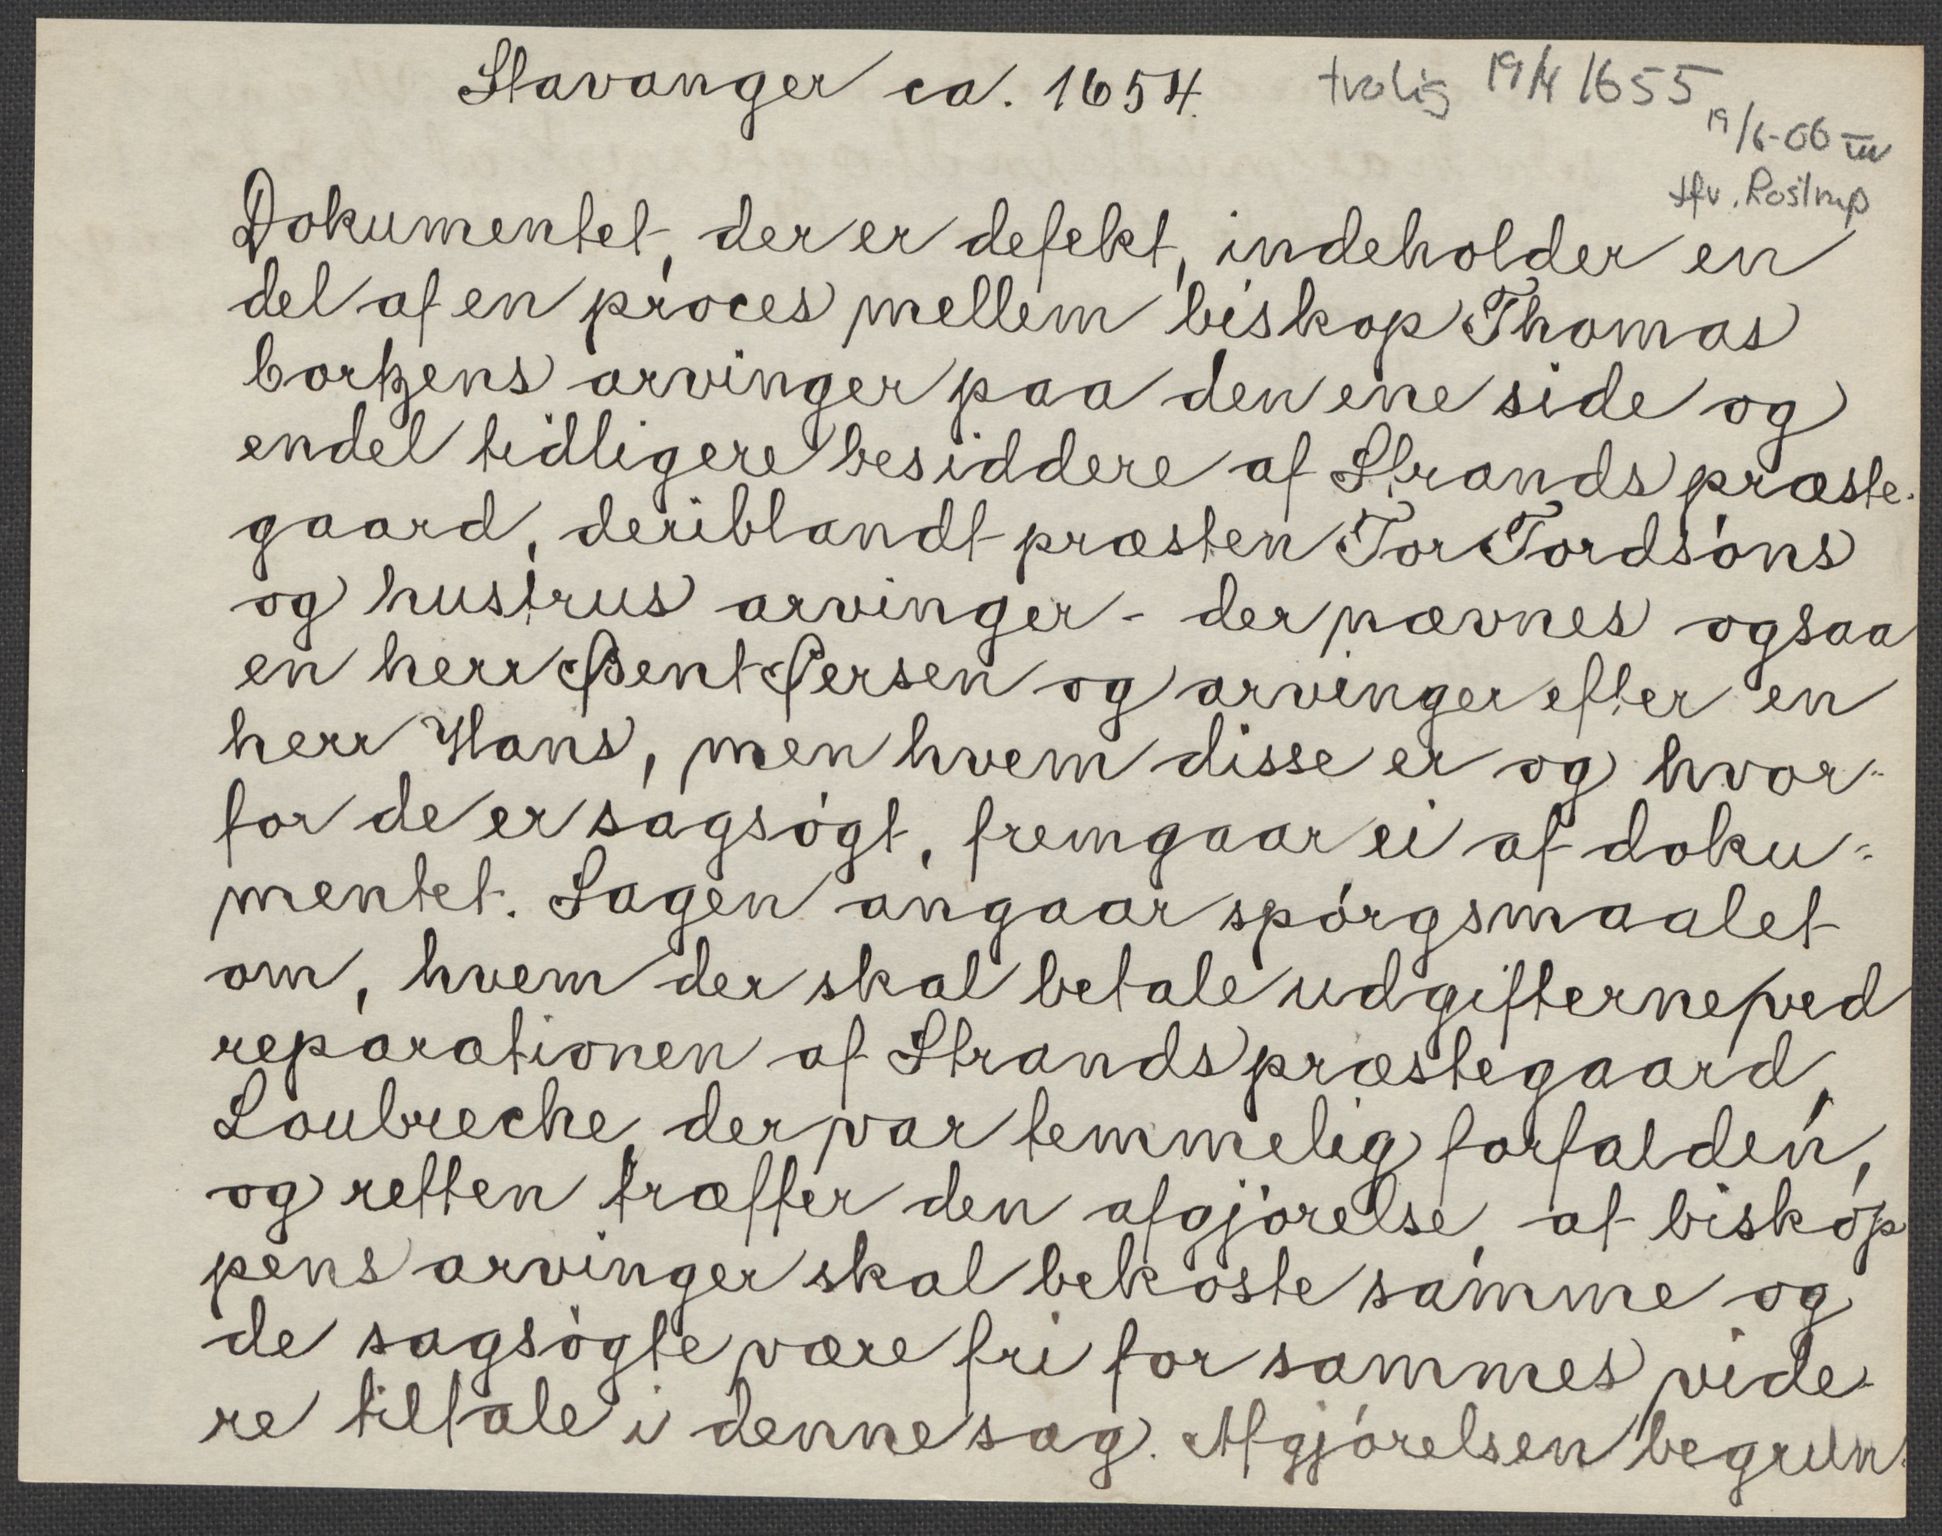 Stavanger ca. 1654.
trolig 19/4 1655
19/6-06 III
Hfv. Rostrup
Dokumentet, der er defekt, indeholder en
del af en proces mellem biskop Thomas
Cortzens arvinger paa den ene side og
endel tidligere besiddere af Strands præste-
gaard, deriblandt præsten Tor Tordsöns
og hustrus arvinger - der nævnes ogsaa
en herr Bent Persen og arvinger efter en
herr Hans, men hvem disse er og hvor-
for de er sagsögt, fremgaar ei af doku-
mentet. Sagen angaar spörgsmaalet
om, hvem der skal betale udgifterne ved
reparationen af Strands præstegaard,
Loubreche, der var temmelig forfalden,
og retten træffer den afgjörelse, at biskop
pens arvinger skal bekoste samme og
de sagsögte være fri for sammes vide-
re tiltale i denne sag. Afgjörelsen begrun-